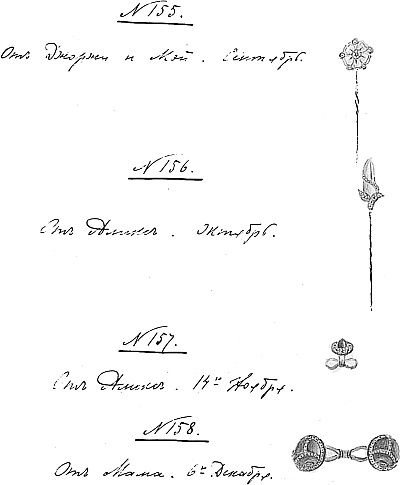 № 155.
Отъ Джоржи и Мэй. Сентябрь.
№ 156.
Отъ Аликсъ. Октябрь.
№ 157.
Отъ Аликсъ. 14го Ноября.
№ 158.
Отъ Мама. 6го Декабря.